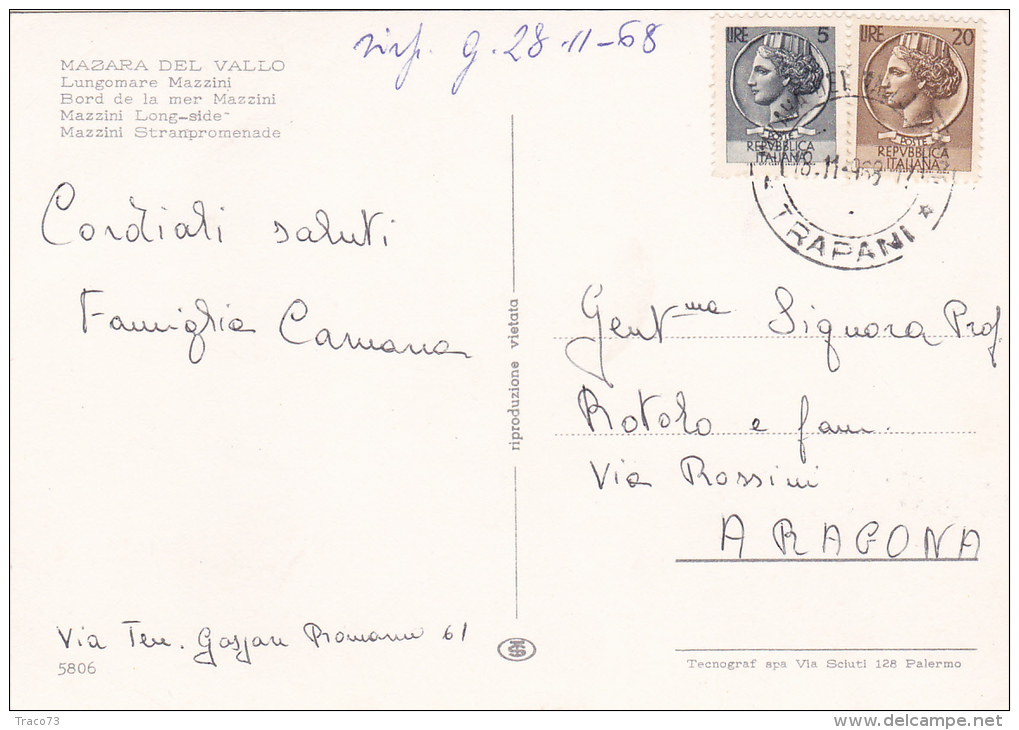 risp. g. 28-11-68
MAZARA DEL VALLO
Lungomare Mazzini
Bord de la mer Mazzini
Mazzini Long-side
Mazzini Stranpromenade
LIRE 5
POSTE
REPVBBLICA
ITALIANA
LIRE 20
POSTE
REPVBBLICA
ITALIANA
TRAPANI
Cordiali saluti
Famiglia
Gent.ma Signora Prof.
Rotolo e fam.
Via Rossini
ARAGONA
riproduzione vietata
Via Ten. Gaspare Romano 61
5806
Tecnograf spa Via Sciuti 128 Palermo
Traco73
delcampe.net